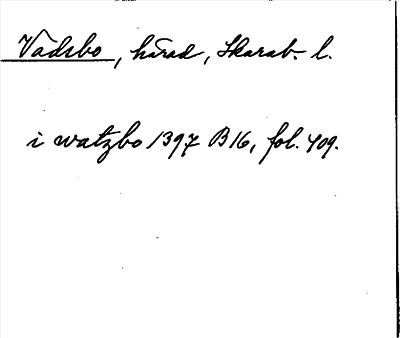 Vadsbo, härad, Skarab. l.
i watzbo 1397 B16, fol. 409.